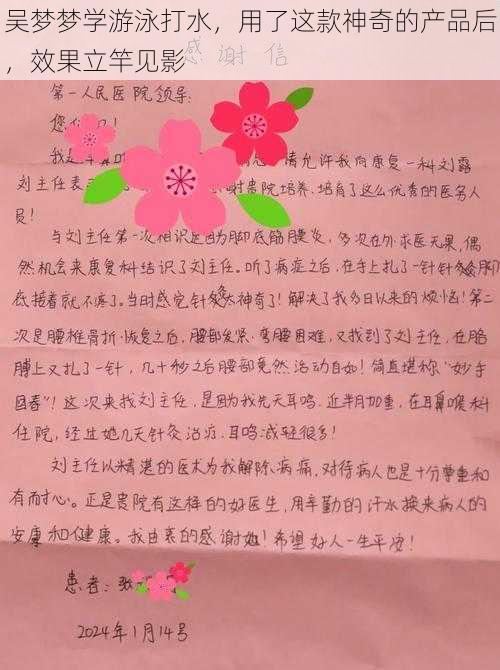 吴梦梦学游泳打水，用了这款神奇的产品后
，效果立竿见影
感谢信
第一人民医院领导:
您 !
我是 请允许我向康复一科刘露
刘主任表 谢贵院培养.培育了这么优秀的医务人
员!
与刘主任第一次相识是因为脚底筋膜炎,多次在外求医无果,偶
然机会来康复科结识了刘主任。听了病症之后,在手上扎了一针针灸,脚
底接着就不疼了。当时感觉针灸太神奇了!解决了我多日以来的烦恼!第二
次是腰椎骨折.恢复之后,腰部发紧.弯腰困难,又找到了刘主任,在胳
膊上又扎了一针,几十秒之后腰部竟然活动自如!简直堪称“妙手
回春”!这次来找刘主任,是因为我先天耳鸣.近半月加重,在耳鼻喉科
住院,经过她几天针灸治疗.耳鸣减轻很多!
刘主任以精湛的医术为我解除病痛,对待病人也是十分尊重和
有耐心。正是贵院有这样的好医生,用辛勤的汗水换来病人的
安康和健康。我由衷的感谢她!希望好人一生平安!
患者:张
2024年1月14号